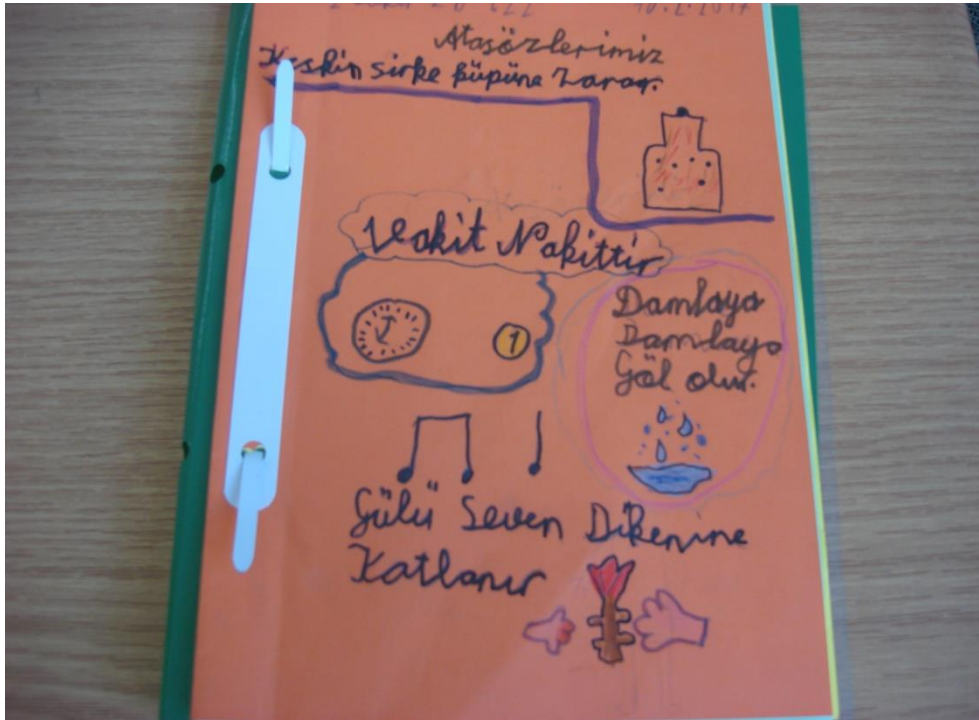 Atasözlerimiz
Keskin sirke küpüne Zarar.
Vakit Nakittir
1
Damlaya
Damlaya
Göl olur.
Gülü Seven Dikenine
Katlanır